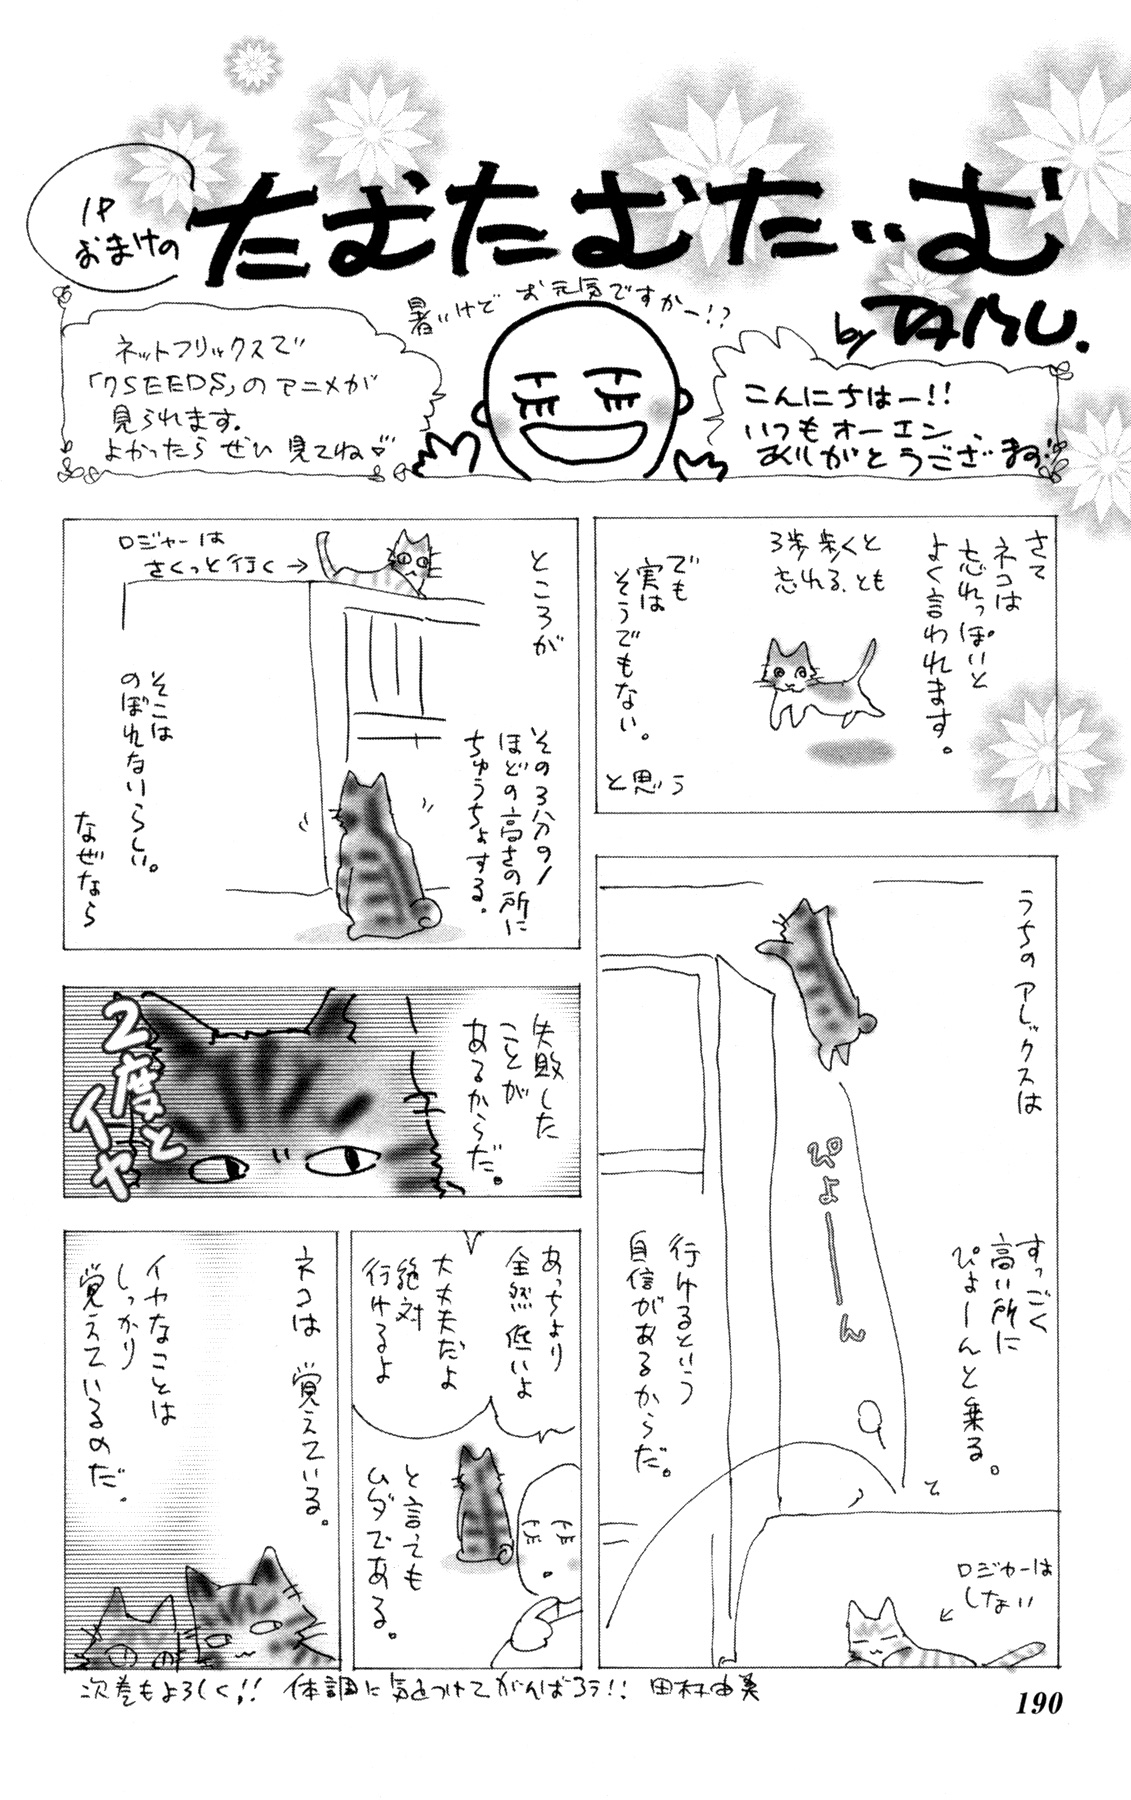 1P
おまけの
たむたむたいむ
by TAMU.
暑いけど お元気ですかー!?
こんにちはー!!
いつもオーエン、
ありがとうございます!!
ネットフリックスで
「7SEEDS」のアニメが
見られます。
よかったら ぜひ 見てね♡
さて
ネコは
忘れっぽいと
よく言われます。
3歩歩くと
忘れる、とも
でも
実は
そうでもない。
と思う
うちの アレックスは
すっごく
高い所に
ぴょーんと乗る。
ぴょーん
行けるという
自信があるからだ。
ロジャーは
しない
ところが
その3分の1
ほどの高さの所に
ちゅうちょする。
ロジャーは
さくっと行く→
そこは
のぼれないらしい。
なぜなら
失敗した
ことが
あるからだ。
2度と
イヤ
あっちより
全然低いよ
大丈夫だよ
絶対
行けるよ
と言っても
ムダである。
ネコは 覚えている。
イヤなことは
しっかり
覚えているのだ。
次巻もよろしく!! 体調に気をつけてがんばろう!! 田村由美
190